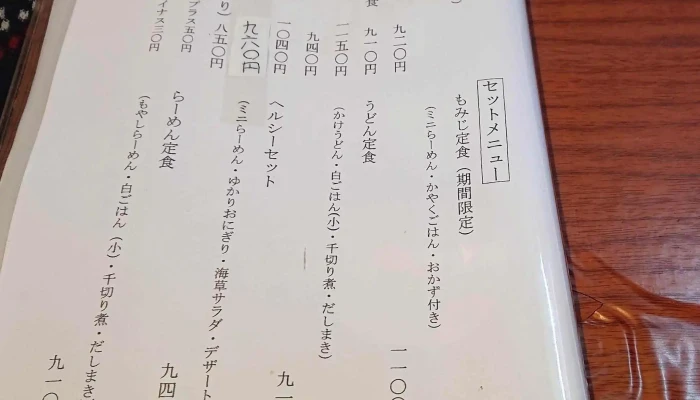 九二〇円
食
九一〇円
一一五〇円
九四〇円
一〇四〇円
九六〇円
り）
八五〇円
プラス五〇円
イナス三〇円
セットメニュー
もみじ定食（期間限定）
（ミニらーめん・かやくごはん・おかず付き）
一一〇〇
うどん定食
（かけうどん・白ごはん(小)・千切り煮・だしまき）
九一
ヘルシーセット
（ミニらーめん・ゆかりおにぎり・海草サラダ・デザート
九四
らーめん定食
（もやしらーめん・白ごはん（小）・千切り煮・だしまき
九一〇